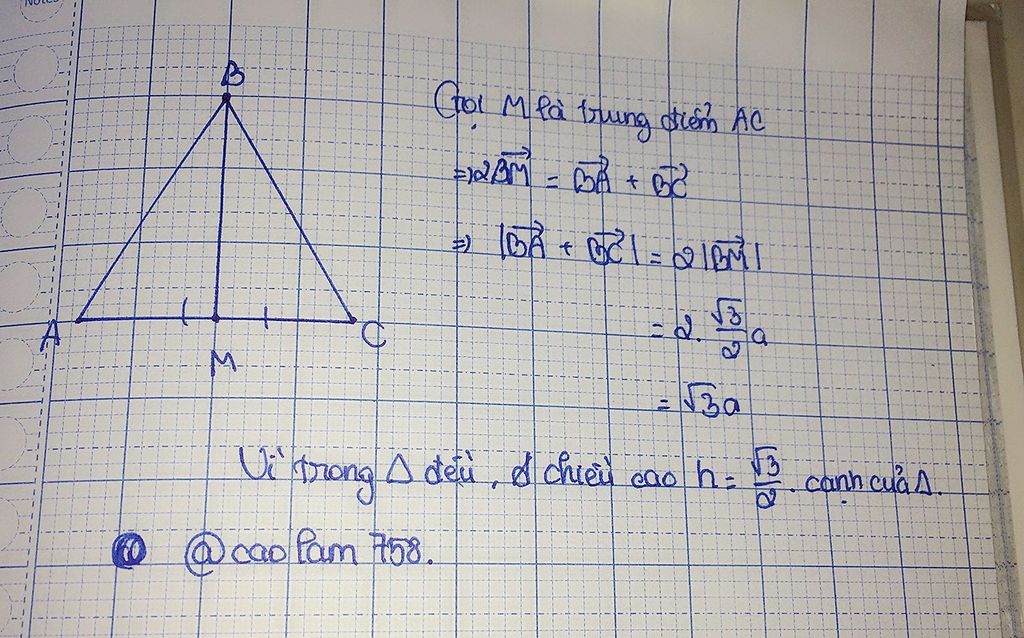 NOTES
B
Gọi M là trung điểm AC
=> 2BM⃗ = BA⃗ + BC⃗
=> |BA⃗ + BC⃗| = 2|BM⃗|
= 2. √3/2 a
= √3a
A
M
C
Vì trong Δ đều, chiều cao h = √3/2 . cạnh của Δ.
@caolam758.